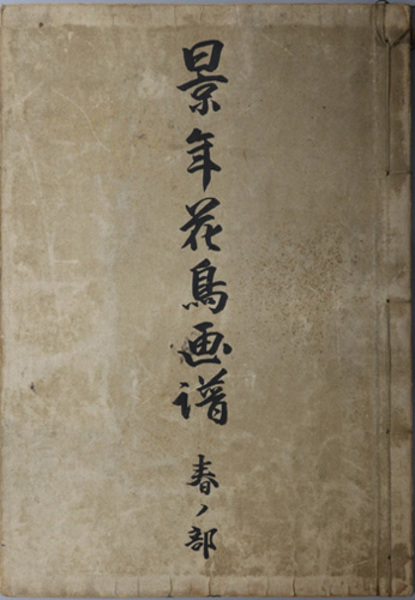 景年花鳥画譜 春ノ部